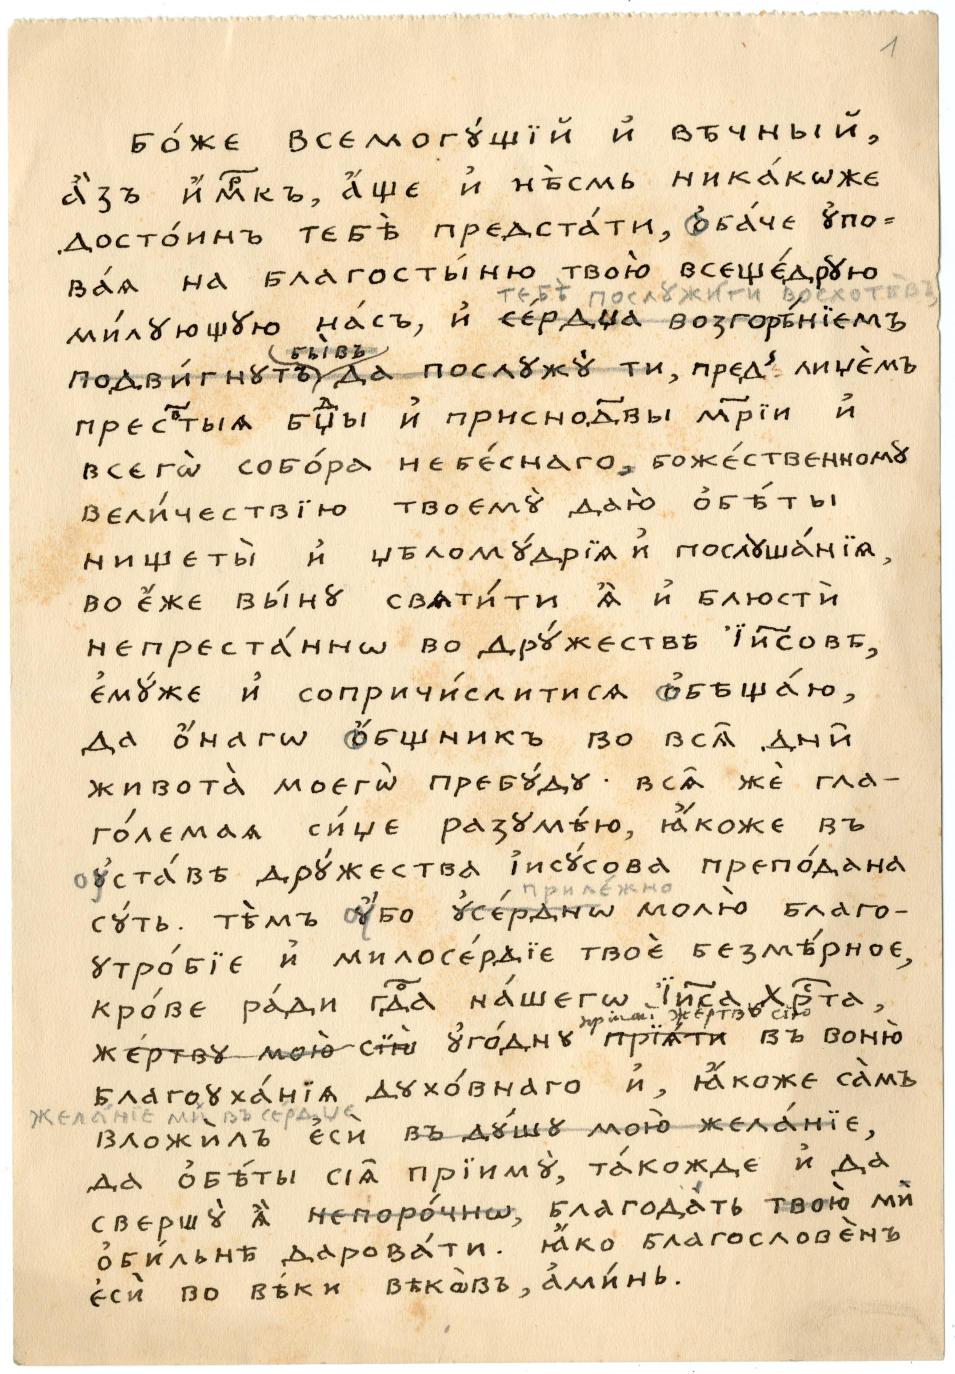 1
Бо́же всемогꙋ́щїй и҆ вѣ́чный,
а҆́зъ и҆м҃рк​ъ, а҆́ще и҆ нѣ́смь ника́кѡже
досто́инъ тебѣ̀ предста́ти, ѻ҆ба́че ᲂу҆по=
ва́ѧ на благосты́ню твою̀ всеще́дрꙋю
тебѣ̀ послꙋжи́ти восхотѣ́въ,
ми́лꙋющꙋю на́съ, и҆ се́рдца возгорѣ́нїемъ
бы́въ
подви́гнꙋтъ да послꙋжꙋ̀ ти, пред̾ лице́мъ
прест҃ыѧ бц҃ды и҆ приснодв҃ы мр҃їи и҆
всегѡ̀ собо́ра небе́снаго, боже́ственномꙋ
вели́чествїю твоемꙋ̀ даю̀ ѻ҆бѣ́ты
нищеты̀ и҆ цѣломꙋ́дрїѧ и҆ послꙋша́нїѧ,
во є҆́же вы́нꙋ свѧти́ти ѧ҆̀ и҆ блюстѝ
непреста́ннѡ во дрꙋ́жествѣ І҆и҃совѣ,
є҆мꙋ́же и҆ сопричи́слитисѧ ѻ҆бѣща́ю,
да ѻ҆́нагѡ ѻ҆́бщникъ во всѧ̑ дни̑
живота̀ моегѡ̀ пребꙋ́дꙋ· всѧ̑ жѐ гла-
го́лемаѧ си́це разꙋмѣ́ю, ꙗ҆́коже въ
ᲂу҆ста́вѣ дрꙋ́жества і҆исꙋ́сова препо́дана
приле́жно
сꙋ́ть. тѣ́мъ ᲂу҆̀бо ᲂу҆се́рднѡ молю̀ благо-
ꙋтро́бїе и҆ милосе́рдїе твоѐ безмѣ́рное,
кро́ве ра́ди гд҃а на́шегѡ І҆и҃са Хр҃та,
прїимѝ же́ртвꙋ сїю̀
же́ртвꙋ мою̀ сїю̀ ᲂу҆го́днꙋ прїѧ́ти въ воню̀
благоꙋха́нїѧ дꙋхо́внаго и҆, ꙗ҆́коже са́мъ
жела́нїе мѝ въ се́рдце
вложи́лъ є҆сѝ въ дꙋ́шꙋ мою̀ жела́нїе,
да ѻ҆бѣ́ты сїѧ̑ прїимꙋ̀, та́кожде и҆ да
свершꙋ̀ ѧ҆̀ непоро́чнѡ, благода́ть твою̀ мѝ
ѻ҆би́льнѣ дарова́ти. ꙗ҆́ко благослове́нъ
є҆сѝ во вѣ́ки вѣкѡ́въ, а҆ми́нь.